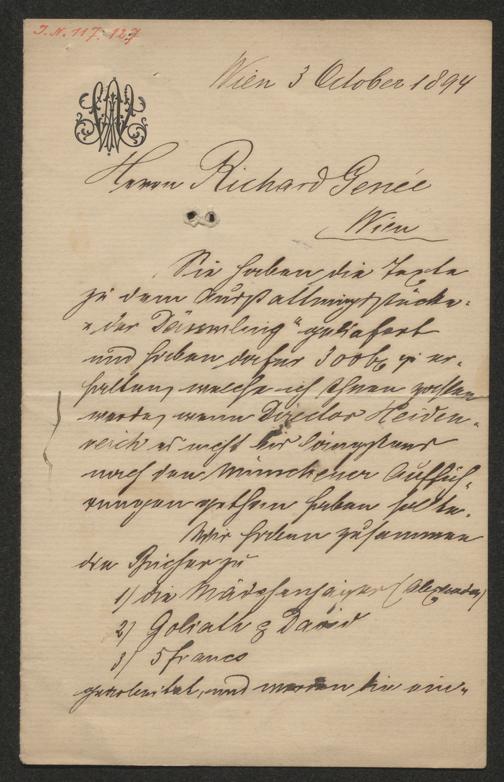 J. N. 117.127
Wien 3 October 1894
Herrn Richard Genée
Wien
Sie haben die Texte
zu dem Ausstattungsstücke:
"der Däumling" geliefert
und haben dafür 300 zu er-
halten, welche ich Ihnen zahlen
werde, wenn Director Heiden-
reich es nicht bis längstens
nach den Münchener Auffüh-
rungen gethan haben sollte.
Wir haben zusammen
die Bücher zu
1) die Mädchenjäger (Alexander)
2) Goliath & David
3) 5 Francs
gearbeitet, und werden die ein-